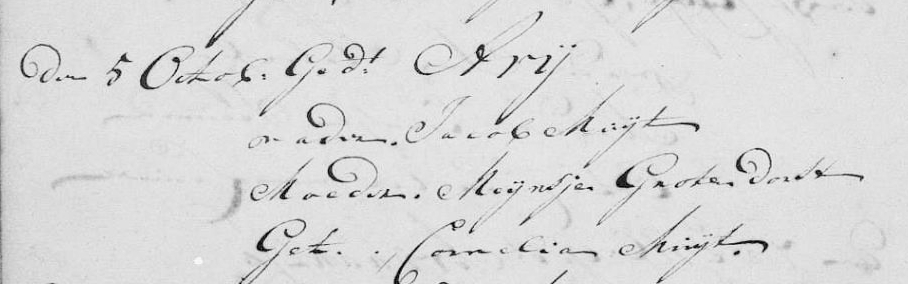 den 5 Octob: Gedt Arij
vader. Jacob Muijt
Moeder. Meijnsje Grotendorst
Get. Cornelia Muijt.